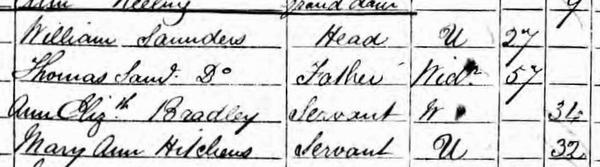 Ann Neeling Grand daur 9
William Saunders Head U 27
Thomas Sand. Do Father Widr 57
Ann Elizth Bradley Servant W 34
Mary Ann Hitchens Servant U 32